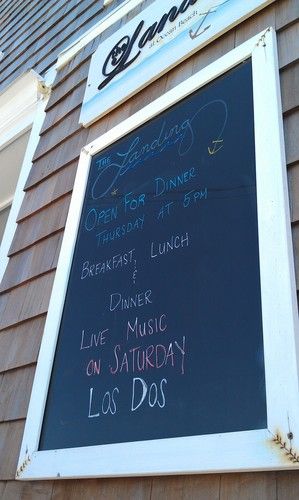 Land
at Ocean Beach
THE Landing
OPEN FOR DINNER
THURSDAY AT 5PM
BREAKFAST, LUNCH
&
DINNER
LIVE MUSIC
ON SATURDAY
LOS DOS